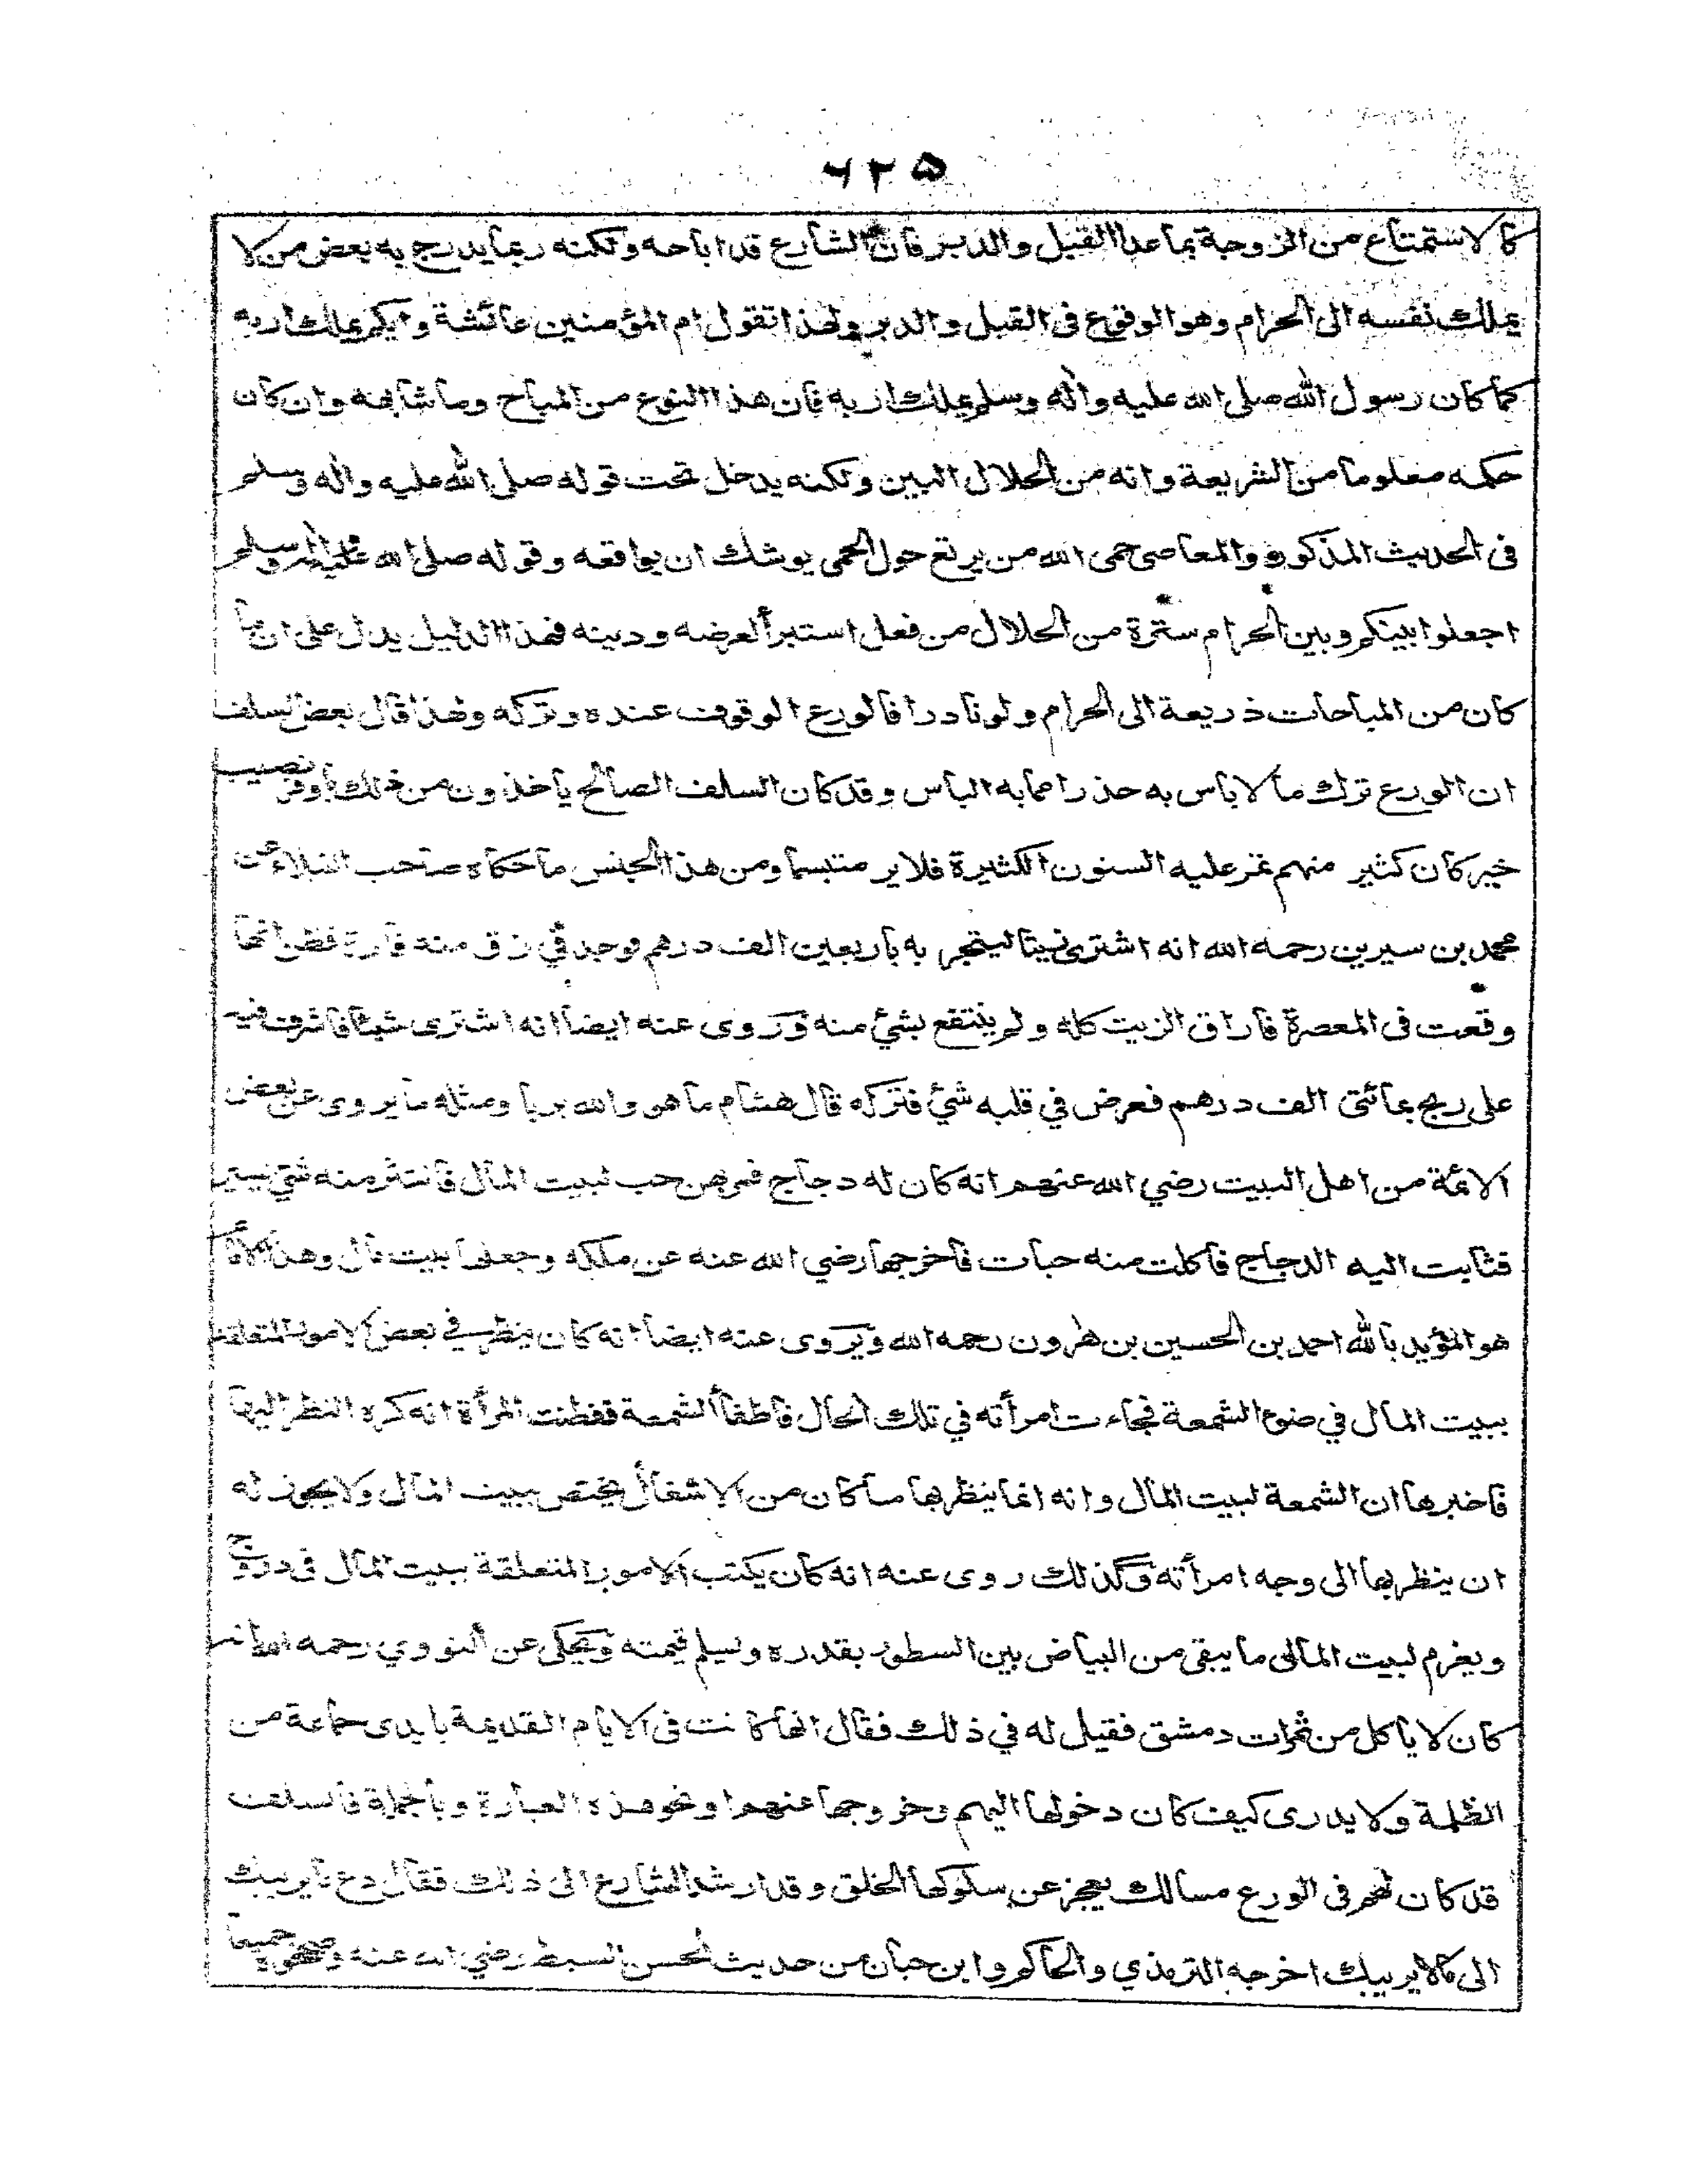 ٦٢٥
كالاستمتاع من الزوجة بما عدا القبل والدبر فان الشارع قد اباحه ولكنه ربما يدرج به بعض من لا
يملك نفسه الى الحرام وهو الوقوع فى القبل والدبر ولهذا تقول ام المؤمنين عائشة وايكم يملك اربه
كما كان رسول الله صلى الله عليه واله وسلم يملك اربه فان هذا النوع من المباح وما شابهه وان كان
حكمه معلوما من الشريعة وانه من الحلال البين ولكنه يدخل تحت قوله صلى الله عليه واله وسلم
فى الحديث المذكور والمعاصى حمى الله من يرتع حول الحمى يوشك ان يواقعه وقوله صلى الله عليه وسلم
اجعلوا بينكم وبين الحرام سترة من الحلال من فعل استبرأ لعرضه ودينه فهذا الدليل يدل على ان ما
كان من المباحات ذريعة الى الحرام ولو نادرا فالورع الوقوف عنده وتركه ولهذا قال بعض السلف
ان الورع ترك ما لا باس به حذرا مما به الباس وقد كان السلف الصالح ياخذون من ذلك باوفر نصيب
خير كان كثير منهم تمر عليه السنون الكثيرة فلا ير متبسما ومن هذا الجنس ما حكاه صاحب النبلاء عن
محمد بن سيرين رحمه الله انه اشترى زيتا ليتجر به باربعين الف درهم فوجد في زق منه فارة فظن انها
وقعت فى المعصرة فاراق الزيت كله ولم ينتفع بشئ منه وروى عنه ايضا انه اشترى شيئا فاشرف فيه
على ربح بمائتى الف درهم فعرض في قلبه شئ فتركه قال هشام ما هو والله بربا ومثله ما يروى عن بعض
الائمة من اهل البيت رضي الله عنهم انه كان له دجاج فمر من حب لبيت المال فانتثر منه شئ يسير
فثابت اليه الدجاج فاكلت منه حبات فاخرجها رضي الله عنه عن ملكه وجعلها بيت مال وهذا الامام
هو المؤيد بالله احمد بن الحسين بن هرون رحمه الله ويروى عنه ايضا انه كان ينظر في بعض الامور المتعلقة
ببيت المال في ضوء الشمعة فجاءت امرأته في تلك الحال فاطفأ الشمعة ففطنت المرأة انه كره النظر اليها
فاخبرها ان الشمعة لبيت المال وانه انما ينظر بها ما كان من الاشغال يختص ببيت المال ولا يجوز له
ان ينظر بها الى وجه امرأته وكذلك روى عنه انه كان يكتب الامور المتعلقة ببيت المال فى درج
ويغرم لبيت المال ما يبقى من البياض بين السطور بقدره وتسلم قيمته ويحكى عن النووي رحمه الله انه
كان لا ياكل من ثمرات دمشق فقيل له في ذلك فقال انها كانت فى الايام القديمة بايدى جماعة من
الظلمة ولا يدرى كيف كان دخولها اليهم وخروجها عنهم او نحو هذه العبارة وبالجملة فالسلف
قد كان لهم فى الورع مسالك يعجز عن سلوكها الخلق وقد ارشد الشارع الى ذلك فقال دع ما يريبك
الى ما لا يريبك اخرجه الترمذي والحاكم وابن حبان من حديث الحسن السبط رضي الله عنه وصححوه جميعا